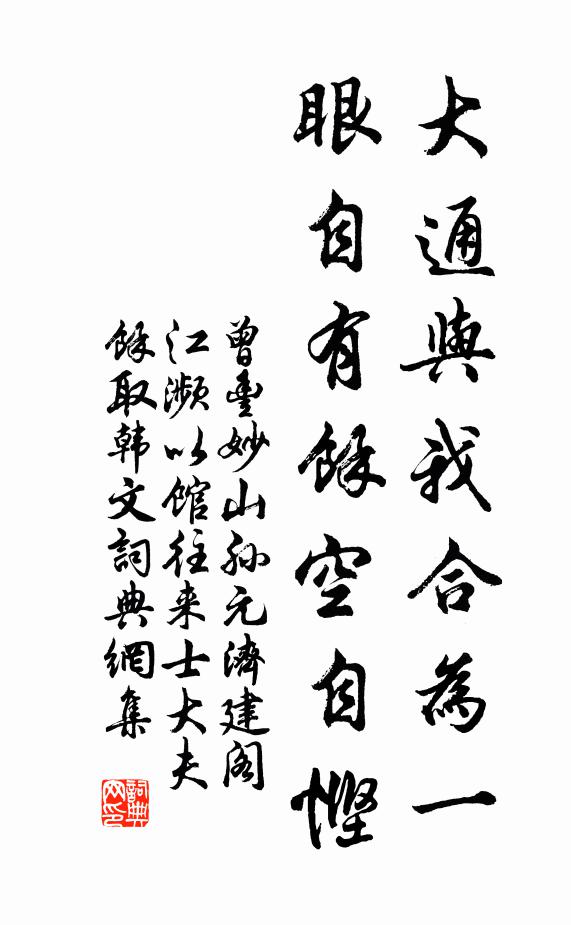 大通與我合為一
眼自有餘空自慳
曾豊妙山孙元濟建阁
江濒以馆往来士大夫
餘取韩文詞典網集
詞典网印